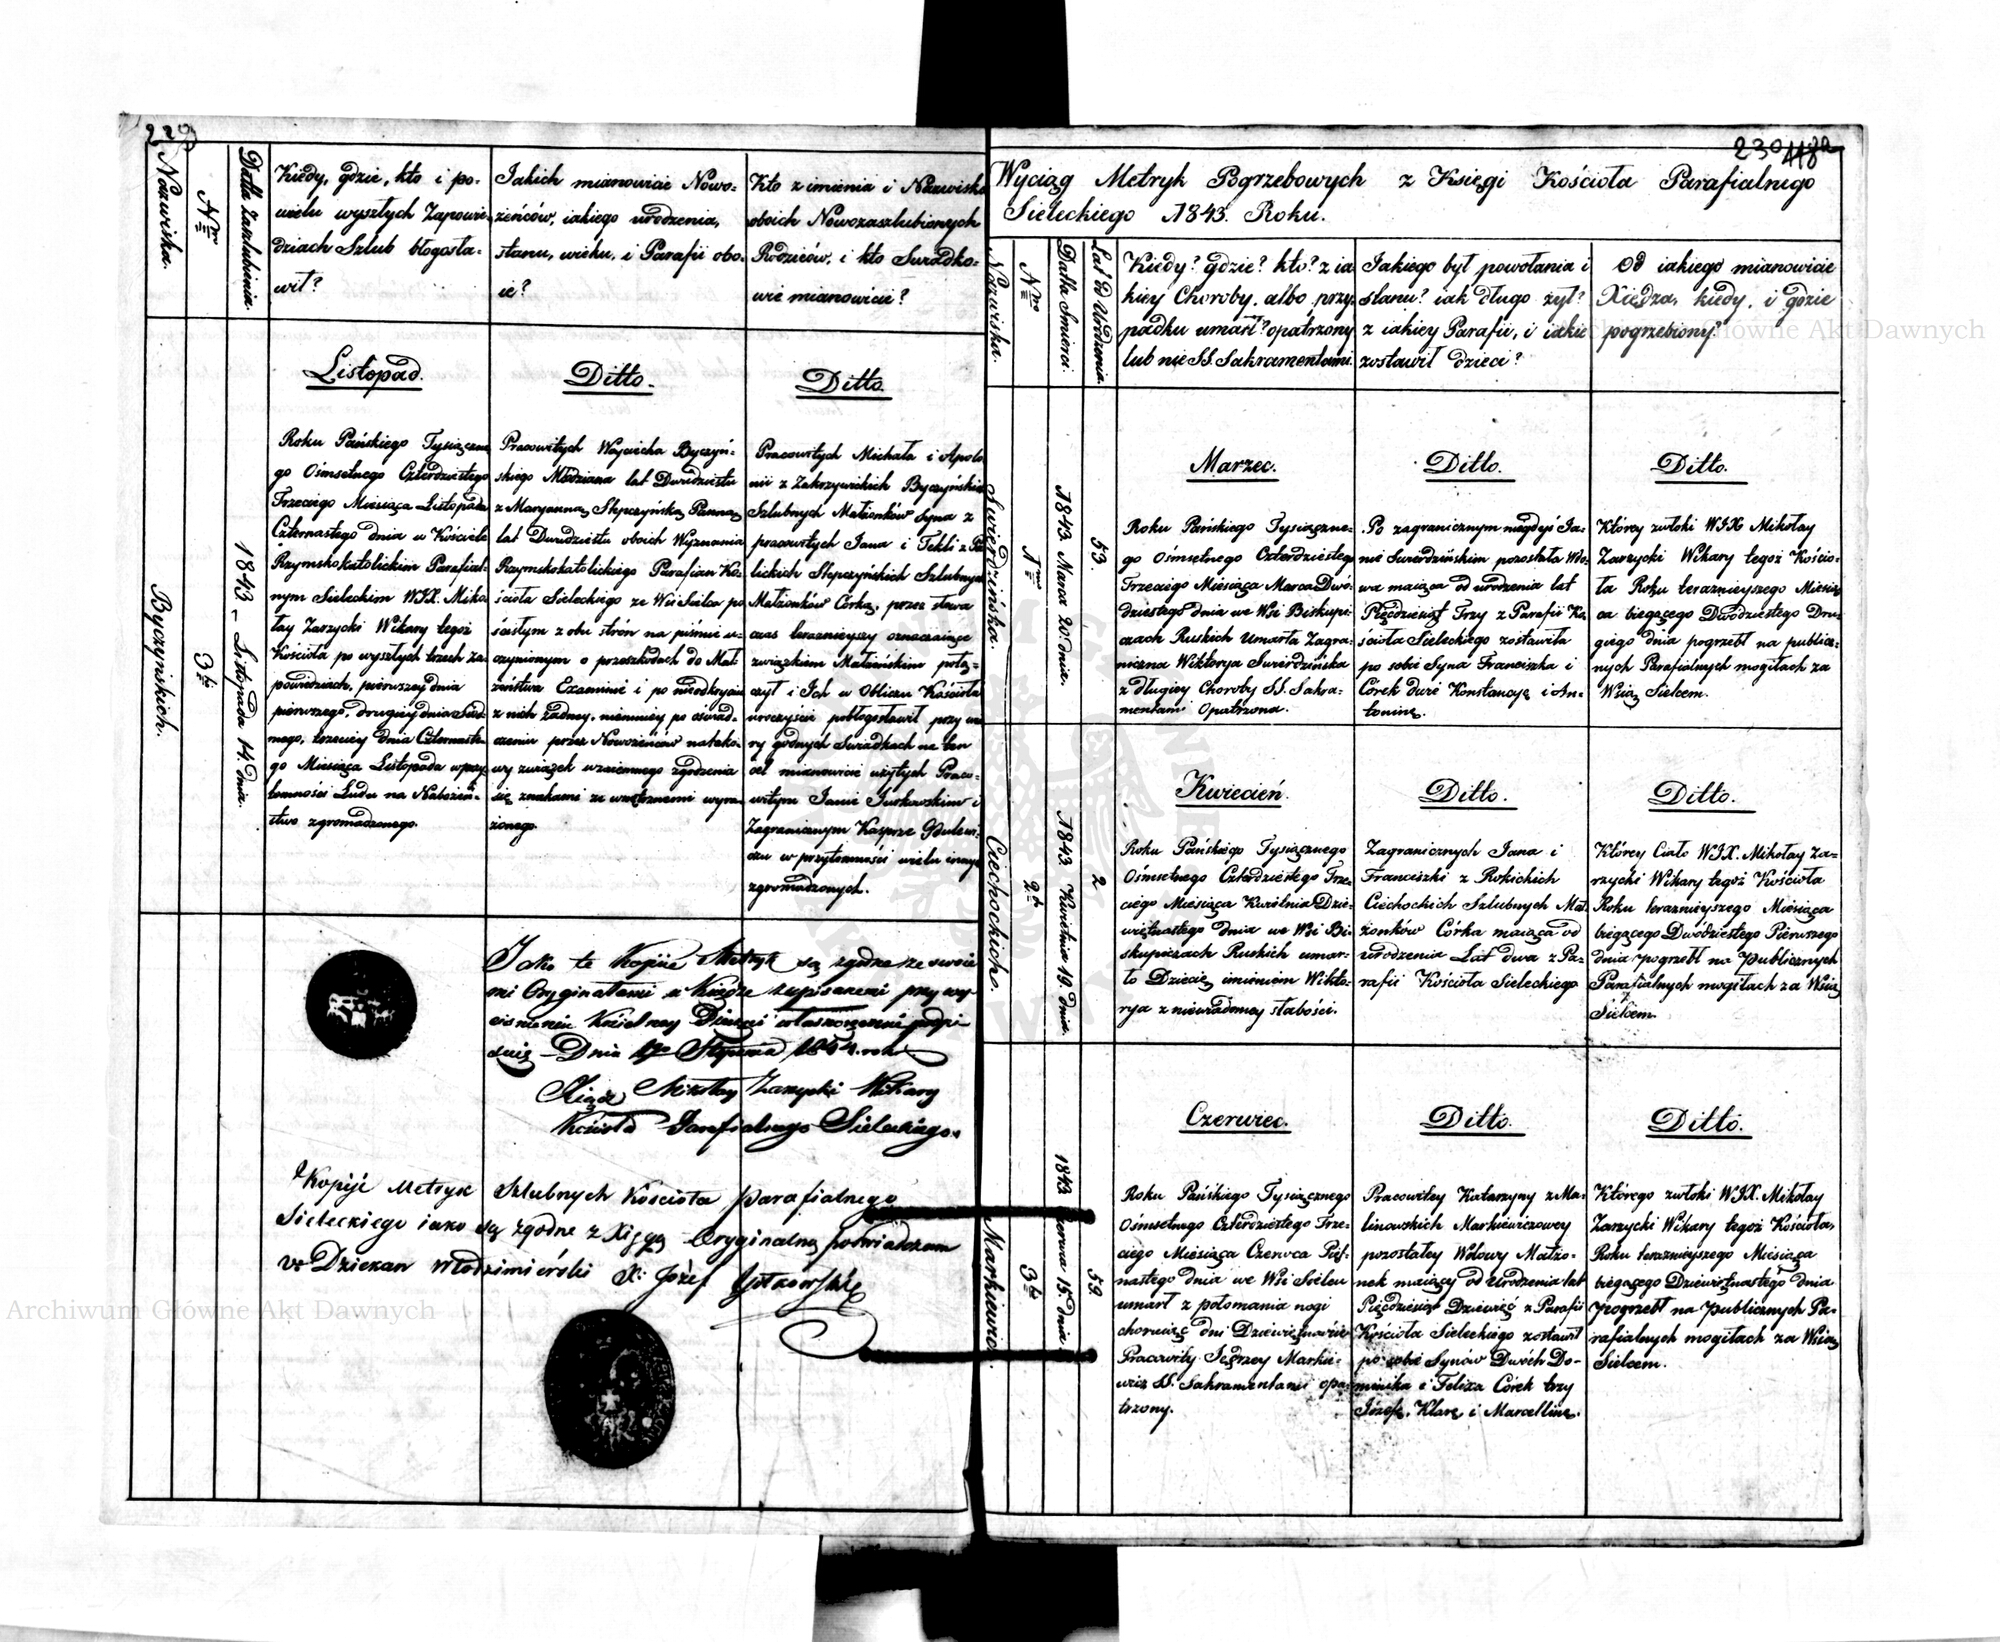 229
Nazwiska.
Nro
Datta Zaszlubienia.
Kiedy, gdzie, kto i po-
wielu wyszłych Zapowie-
dziach Szlub błogosła-
wił?
Jakich mianowicie Nowo-
żeńców, iakiego urodzenia,
stanu, wieku, i Parafii obo-
ie?
Kto z imienia i Nazwiska
oboich Nowozaszlubionych
Rodziców, i kto Swiadko-
wie mianowicie?
Byczynskich.
3ci
1843 – Listopada 14. dnia.
Listopad.
Roku Pańskiego Tysiączne-
go Ośmsetnego Czterdziestego
Trzeciego Miesiąca Listopada
Czternastego dnia w Kościele
Rzymskokatolickim Parafial-
nym Sieleckim WJX. Miko-
łay Zarzycki Wikary tegoż
Kościoła po wyszłych trzech za-
powiedziach, pierwszey dnia
pierwszego, drugiey dnia Siód-
mego, trzeciey dnia Czternaste-
go Miesiąca Listopada w przy-
tomności Ludu na Nabożeń-
stwo zgromadzonego.
Ditto.
Pracowitych Woyciecha Byczyń-
skiego Młodziana lat Dwadziestu
z Maryanną Stypczyńską Panną
lat Dwadziestu oboich Wyznania
Rzymskokatolickiego Parafian Ko-
ścioła Sieleckiego ze Wsi Sielca po
ścisłym z obu strón na piśmie u-
czynionym o przeszkodach do Mał-
żeństwa Examinie i po nieodkryciu
z nich żadney, niemniey po oświad-
czeniu przez Nowożeńców natako-
wy związek wzaiemnego zgodzenia
się znakami ze wnętrznemi wyra-
żonego.
Ditto.
Pracowitych Michała i Apolo-
nii z Zakrzywickich Byczyńskich
Szlubnych Małżonków Syna z
pracowitych Jana i Tekli z
lickich Stypczyńskich Szlubnych
Małżonków Córką, przez słowa
czas teraznieyszy oznaczaiące
związkiem Małżeńskim połą-
czył i Ich w Obliczu Kościoła
uroczyście pobłogosławił przy wia-
ry godnych Swiadkach na ten
cel mianowicie użytych Praco-
witym Janie Jurkowskim i
Zagranicznym Kasprze
czu w przytomności wielu innych
zgromadzonych.
Jako te Kopije Metryk są zgodne ze swoie-
mi Oryginałami w Księdze zapisanemi przy wy-
ciśnieniu Kościelney Pieczęci własnoręcznie podpi-
suię Dnia Stycznia 1844. roku
Xiądz Mikołay Zarzycki Wikary
Kościoła Parafialnego Sieleckiego.
Kopije Metryk Szlubnych Kościoła Parafialnego
Sieleckiego iako są zgodne z Xięgą Oryginalną poświadczam
Dziekan Włodzimierski X. Józef
230
Wyciąg Metryk Pogrzebowych z Księgi Kościoła Parafialnego
Sieleckiego 1843. Roku.
Nazwiska.
Nro
Datta Smierci.
Lat od Urodzenia.
Kiedy? gdzie? kto? z ia-
kiey Choroby, albo przy-
padku umarł? opatrzony
lub nie SS. Sakramentami.
Jakiego był powołania i
stanu? iak długo żył?
z iakiey Parafii, i iakie
zostawił dzieci?
Od iakiego mianowicie
Xiędza, kiedy, i gdzie
pogrzebiony?
Swierdzińska.
1mo
1843. Marca 20. dnia.
53.
Marzec.
Roku Pańskiego Tysiączne-
go Ośmsetnego Czterdziestego
Trzeciego Miesiąca Marca Dwu-
dziestego dnia we Wsi Biskupi-
czach Ruskich Umarła Zagra-
niczna Wiktorya Swierdzińska
z długiey Choroby SS. Sakra-
mentami Opatrzona.
Ditto.
Po zagranicznym niegdyś Ja-
nie Swierdzińskim pozostała Wdo-
wa maiąca od urodzenia lat
Pięćdziesiąt Trzy z Parafii Ko-
ścioła Sieleckiego zostawiła
po sobie Syna Franciszka i
Córek dwie Konstancyę i An-
toninę.
Ditto.
Którey zwłoki WJX Mikołay
Zarzycki Wikary tegoż Kościo-
ła Roku teraznieyszego Miesią-
ca biegącego Dwódziestego Dru-
giego dnia pogrzebł na publicz-
nych Parafialnych mogiłach za
Wsią Sielcem.
Ciechockich.
2do
1843 Kwietnia 19. dnia.
2
Kwiecień.
Roku Pańskiego Tysiącznego
Ośmsetnego Czterdziestego Trze-
ciego Miesiąca Kwietnia Dzie-
więtnastego dnia we Wsi Bi-
skupiczach Ruskich umar-
ło Dziecię imieniem Wikto-
rya z niewiadomey słabości.
Ditto.
Zagranicznych Jana i
Franciszki z Rokickich
Ciechockich Szlubnych Mał-
żonków Córka maiąca od
urodzenia Lat dwa z Pa-
rafii Kościoła Sieleckiego
Ditto.
Którey Ciało WJX. Mikołay Za-
rzycki Wikary tegoż Kościoła
Roku teraznieyszego Miesiąca
biegącego Dwódziestego Pierwszego
dnia pogrzebł na Publicznych
Parafialnych mogiłach za Wsią
Sielcem.
Markiewicz.
3tio
1843 Czerwca 15. dnia
59.
Czerwiec.
Roku Pańskiego Tysiącznego
Ośmsetnego Czterdziestego Trze-
ciego Miesiąca Czerwca Pięt-
nastego dnia we Wsi Sielcu
umarł z połomania nogi
choruiąc dni Dziewiętnaście
Pracowity Jędrzey Markie-
wicz SS. Sakramentami opa-
trzony.
Ditto.
Pracowitey Katarzyny z Ma-
linowskich Markiewiczowey
pozostałey Wdowy Małżo-
nek maiący od Urodzenia lat
Pięćdziesiąt Dziewięć z Parafii
Kościoła Sieleckiego zostawił
po sobie Synów Dwóch Do-
minika i Felixa Córek trzy
Józefę, Klarę i Marcellinę.
Ditto.
Którego zwłoki WJX. Mikołay
Zarzycki Wikary tegoż Kościoła,
Roku teraznieyszego Miesiąca
biegącego Dziewiętnastego dnia
pogrzebł na Publicznych Pa-
rafialnych mogiłach za Wsią
Sielcem.
Archiwum Główne Akt Dawnych